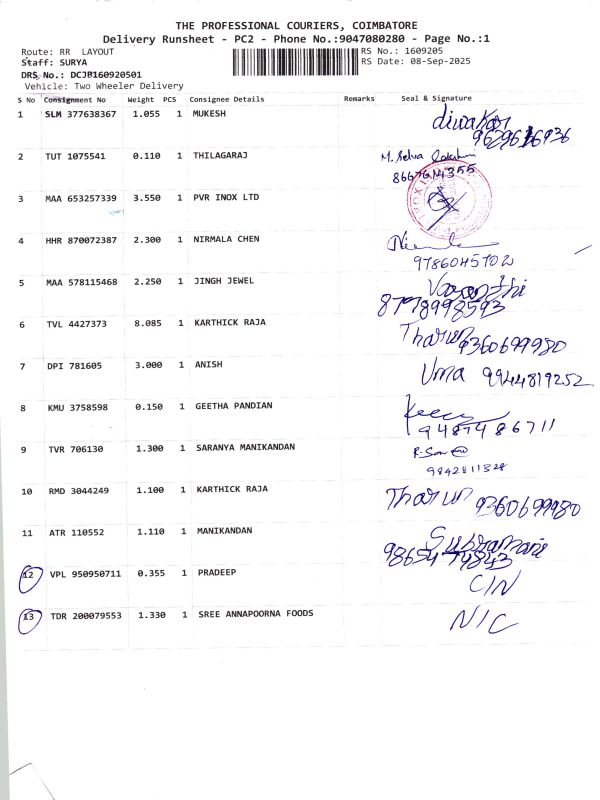 THE PROFESSIONAL COURIERS, COIMBATORE
Delivery Runsheet - PC2 - Phone No.:9047080280 - Page No.:1
Route: RR LAYOUT RS No.: 1609205
Staff: SURYA RS Date: 08-Sep-2025
DRS No.: DCJB160920501
Vehicle: Two Wheeler Delivery
S No Consignment No Weight PCS Consignee Details Remarks Seal & Signature
1 SLM 377638367 1.055 1 MUKESH diwakar
2 TUT 1075541 0.110 1 THILAGARAJ M. Selva
3 MAA 653257339 3.550 1 PVR INOX LTD
4 HHR 870072387 2.300 1 NIRMALA CHEN
9786045702
5 MAA 578115468 2.250 1 JINGH JEWEL Vasanthi
8778998593
6 TVL 4427373 8.085 1 KARTHICK RAJA Tharun 9360699980
7 DPI 781605 3.000 1 ANISH Uma 9944819252
8 KMU 3758598 0.150 1 GEETHA PANDIAN
9487486711
9 TVR 706130 1.300 1 SARANYA MANIKANDAN
9842811328
10 RMD 3044249 1.100 1 KARTHICK RAJA Tharun 9360699980
11 ATR 110552 1.110 1 MANIKANDAN
9865474843
12 VPL 950950711 0.355 1 PRADEEP C/N
13 TDR 200079553 1.330 1 SREE ANNAPOORNA FOODS N/C